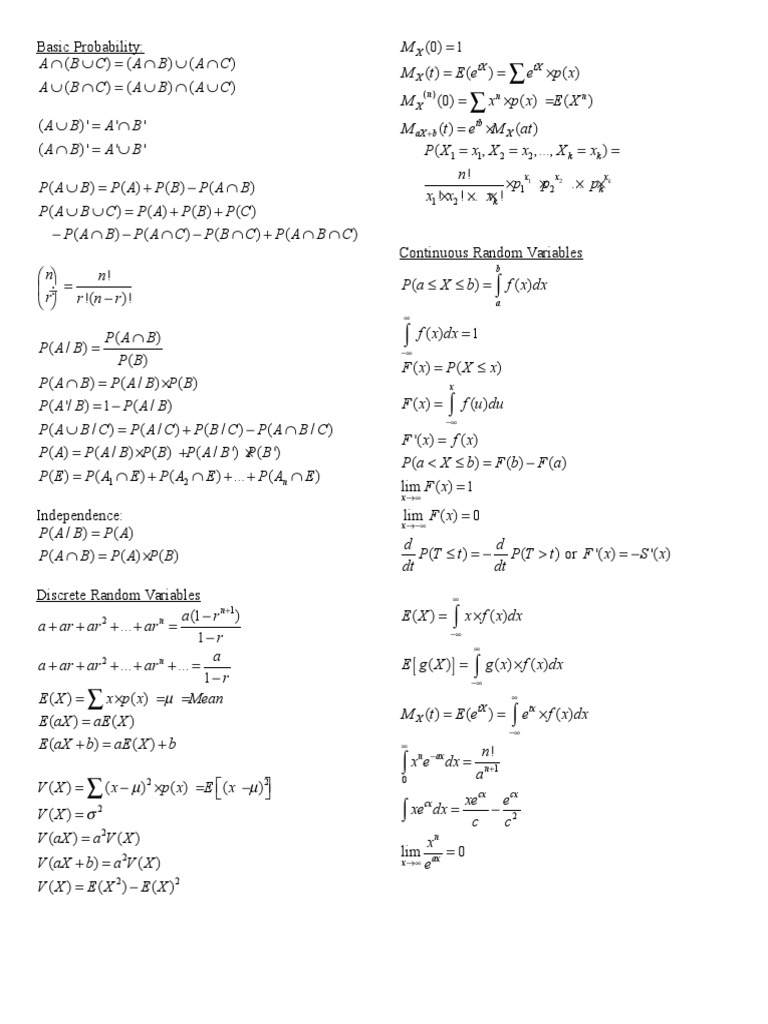 Basic Probability:
A∩(B∪C) = (A∩B)∪(A∩C)
A∪(B∩C) = (A∪B)∩(A∪C)
(A∪B)' = A'∩B'
(A∩B)' = A'∪B'
P(A∪B) = P(A)+P(B)−P(A∩B)
P(A∪B∪C) = P(A)+P(B)+P(C)
−P(A∩B)−P(A∩C)−P(B∩C)+P(A∩B∩C)
(n r) = n!/(r!(n−r)!)
P(A/B) = P(A∩B)/P(B)
P(A∩B) = P(A/B)×P(B)
P(A'/B) = 1−P(A/B)
P(A∪B/C) = P(A/C)+P(B/C)−P(A∩B/C)
P(A) = P(A/B)×P(B) +P(A/B')×P(B')
P(E) = P(A₁∩E)+P(A₂∩E)+...+P(Aₙ∩E)
Independence:
P(A/B) = P(A)
P(A∩B) = P(A)×P(B)
Discrete Random Variables
a+ar+ar²+...+arⁿ = a(1−rⁿ⁺¹)/(1−r)
a+ar+ar²+...+arⁿ+... = a/(1−r)
E(X) = ∑x×p(x) =μ =Mean
E(aX) = aE(X)
E(aX+b) = aE(X)+b
V(X) = ∑(x−μ)²×p(x) =E[(x−μ)²]
V(X) = σ²
V(aX) = a²V(X)
V(aX+b) = a²V(X)
V(X) = E(X²)−E(X)²
M_X(0) = 1
M_X(t) = E(e^{tX}) = ∑e^{tX}×p(x)
M_X^{(n)}(0) = ∑xⁿ×p(x) =E(Xⁿ)
M_{aX+b}(t) = e^{tb}×M_X(at)
P(X₁ = x₁, X₂ = x₂,..., X_k = x_k) =
n!/(x₁!×x₂!×...x_k!)×p₁^{x₁}×p₂^{x₂}...×p_k^{x_k}
Continuous Random Variables
P(a ≤ X ≤ b) = ∫_a^b f(x)dx
∫_{−∞}^{∞} f(x)dx = 1
F(x) = P(X ≤ x)
F(x) = ∫_{−∞}^{x} f(u)du
F'(x) = f(x)
P(a < X ≤ b) = F(b)−F(a)
lim_{x→∞} F(x) = 1
lim_{x→−∞} F(x) = 0
d/dt P(T ≤ t) = −d/dt P(T > t) or F'(x) = −S'(x)
E(X) = ∫_{−∞}^{∞} x×f(x)dx
E[g(X)] = ∫_{−∞}^{∞} g(x)×f(x)dx
M_X(t) = E(e^{tX}) = ∫_{−∞}^{∞} e^{tx}×f(x)dx
∫_0^{∞} xⁿe^{−ax}dx = n!/a^{n+1}
∫xe^{cx}dx = xe^{cx}/c − e^{cx}/c²
lim_{x→∞} xⁿ/e^{ax} = 0